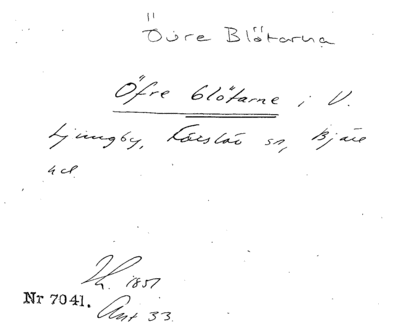 Övre Blötarna
Öfre blötarne i V.
Ljungby, Förslöv sn, Bjäre
hd.
1851
Nr 7041. Ant 33.